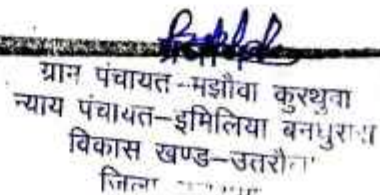 ग्राम पंचायत-मझौवा कुरथुवा
न्याय पंचायत-इमिलिया बनघुसरा
विकास खण्ड-उतरौला
जिला